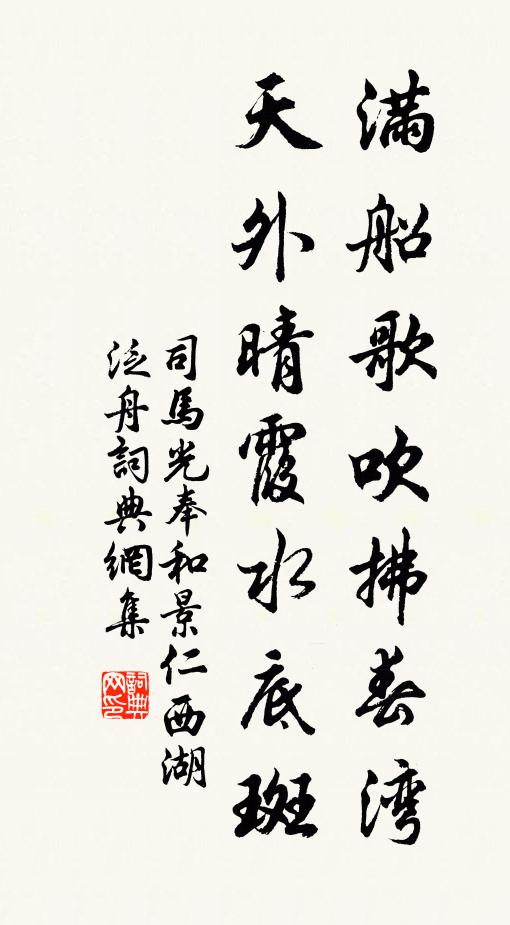 满船歌吹拂春湾
天外晴霞水底斑
司馬光奉和景仁西湖
泛舟詞典網集
詞典
网印